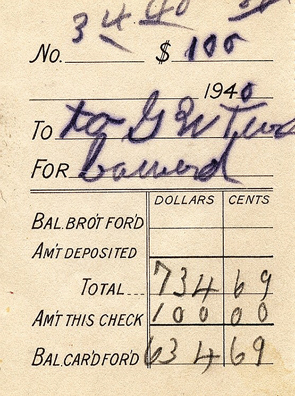 34
No. $ 100
1940
To to G W
FOR
DOLLARS CENTS
BAL. BRO'T FOR'D
AM'T DEPOSITED
TOTAL... 734 69
AM'T THIS CHECK 100 00
BAL. CAR'D FOR'D 634 69